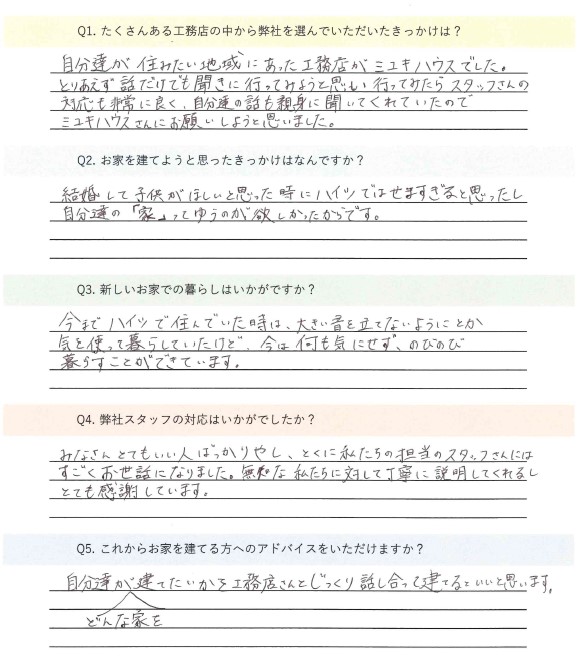 Q1. たくさんある工務店の中から弊社を選んでいただいたきっかけは？
自分達が住みたい地域にあった工務店がミユキハウスでした。
とりあえず話だけでも聞きに行ってみようと思い行ってみたらスタッフさんの
対応も非常に良く、自分達の話も親身に聞いてくれていたので
ミユキハウスさんにお願いしようと思いました。
Q2. お家を建てようと思ったきっかけはなんですか？
結婚して子供がほしいと思った時にハイツではせますぎると思ったし
自分達の「家」ってゆうのが欲しかったからです。
Q3. 新しいお家での暮らしはいかがですか？
今までハイツで住んでいた時は、大きい音を立てないようにとか
気を使って暮らしていたけど、今は何も気にせず、のびのび
暮らすことができています。
Q4. 弊社スタッフの対応はいかがでしたか？
みなさんとてもいい人ばっかりやし、とくに私たちの担当のスタッフさんには
すごくお世話になりました。無知な私たちに対して丁寧に説明してくれるし
とても感謝しています。
Q5. これからお家を建てる方へのアドバイスをいただけますか？
自分達が建てたいかを工務店さんとじっくり話し合って建てるといいと思います。
どんな家を